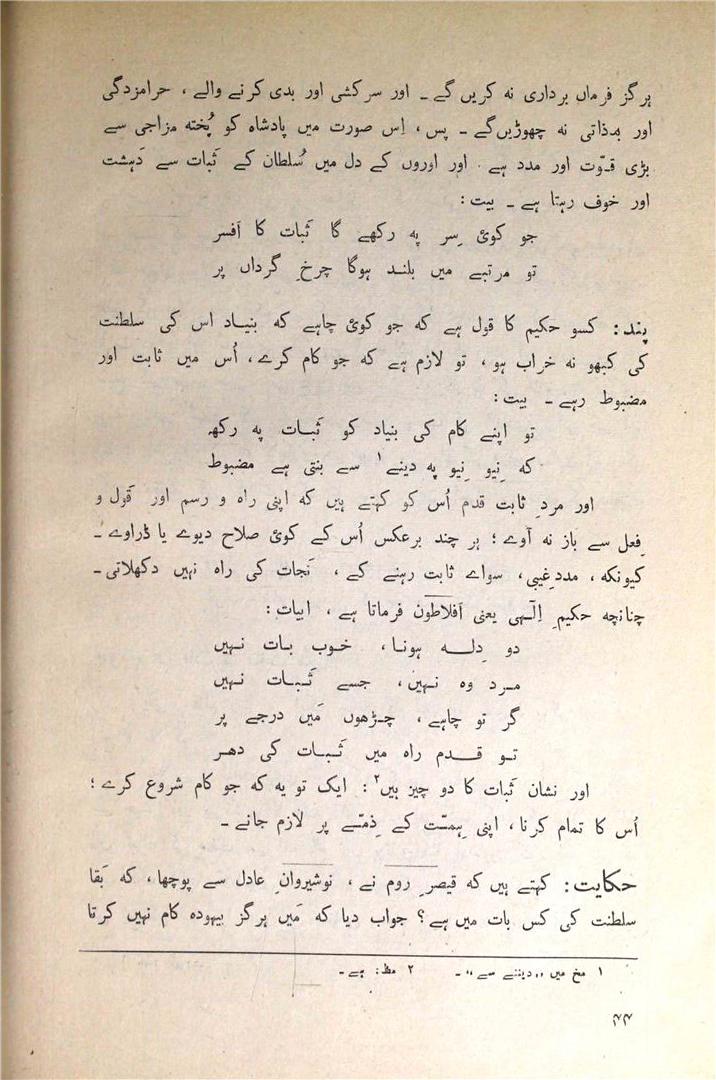 ہرگز فرماں برداری نہ کریں گے ۔ اور سرکشی اور بدی کرنے والے ، حرامزدگی
اور بدذاتی نہ چھوڑیں گے ۔ پس ، اِس صورت میں پادشاہ کو پُختہ مزاجی سے
بڑی قوّت اور مدد ہے . اور اوروں کے دل میں سُلطان کے ثَبات سے دَہشت
اور خوف رہتا ہے ۔ بیت :
جو کوئی سِر پہ رکھے گا ثَبات کا اَفسر
تو مرتبے میں بلند ہوگا چرخِ گرداں پر
پند : کسو حکیم کا قول ہے کہ جو کوئی چاہے کہ بنیاد اس کی سلطنت
کی کبھو نہ خراب ہو ، تو لازم ہے کہ جو کام کرے ، اُس میں ثابت اور
مضبوط رہے ۔ بیت :
تو اپنے کام کی بنیاد کو ثَبات پہ رکھ
کہ نِیو نِیو پہ دینے۱ سے بنتی ہے مضبوط
اور مردِ ثابت قدم اُس کو کہتے ہیں کہ اپنی راہ و رسم اور قَول و
فِعل سے باز نہ آوے ؛ ہر چند برعکس اُس کے کوئی صلاح دیوے یا ڈراوے ۔
کیونکہ ، مددِ غیبی ، سواے ثابت رہنے کے ، نَجات کی راہ نہیں دکھلاتی ۔
چنانچہ حکیمِ اِلٰہی یعنی اَفلاطون فرماتا ہے ، ابیات :
دو دِلہ ہونا ، خوب بات نہیں
مرد وہ نہیں ، جسے ثَبات نہیں
گر تو چاہے ، چڑھوں مَیں درجے پر
تو قدم راہ میں ثَبات کی دھر
اور نشان ثَبات کا دو چیز ہیں۲ : ایک تو یہ کہ جو کام شروع کرے ؛
اُس کا تمام کرنا ، اپنی ہِمّت کے ذِمّے پر لازم جانے ۔
حکایت : کہتے ہیں کہ قیصرِ روم نے ، نوشیروانِ عادل سے پوچھا ، کہ بَقا
سلطنت کی کس بات میں ہے ؟ جواب دیا کہ مَیں ہرگز بیہودہ کام نہیں کرتا
۱ مخ میں ،،دیننے سے،، ۔ ۲ مظ : ہے ۔
۴۴